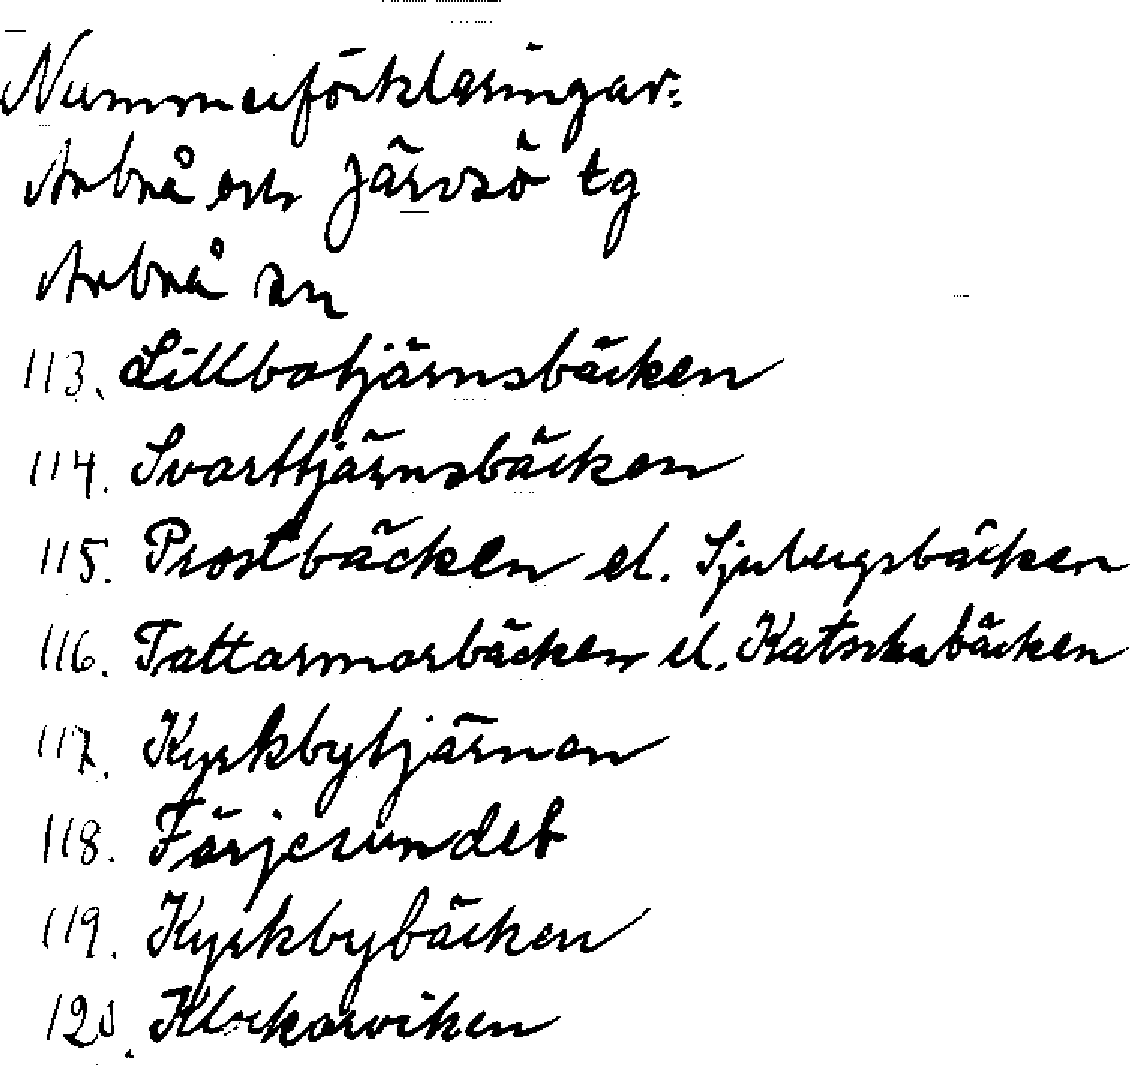 Nummerförklaringar:
Arbrå och Järvsö tg
Arbrå sn
113. Lillbotjärnsbäcken
114. Svarttjärnsbäcken
115. Prostbäcken el. Sjubergsbäcken
116. Tattarmorbäcken el. bäcken
117. Kyrkbytjärnen
118. Färjesundet
119. Kyrkbybäcken
120. Klockarviken